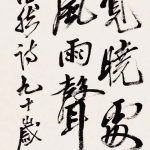 覺曉處
風雨聲
然詩九十歲